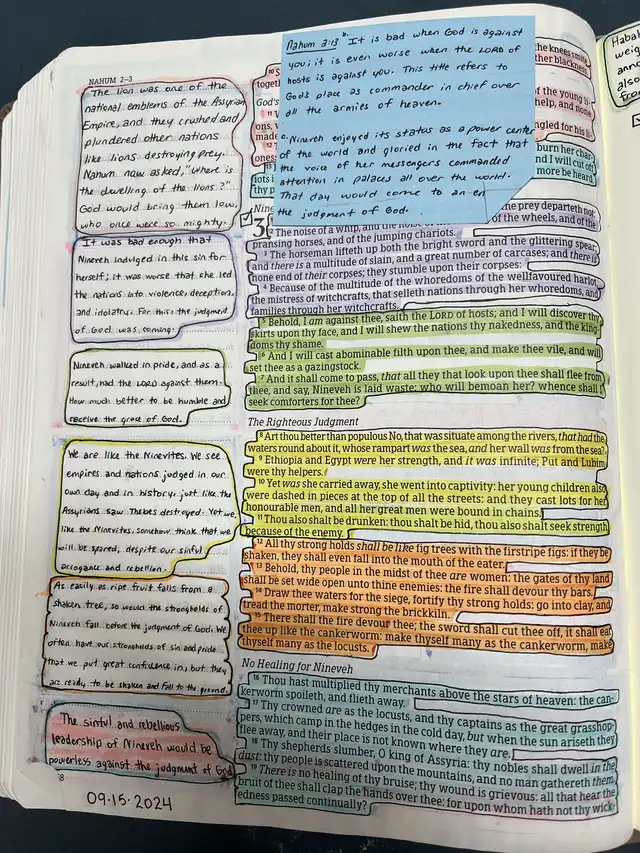 NAHUM 2–3
The lion was one of the
national emblems of the Assyrian
Empire, and they crushed and
plundered other nations
like lions destroying prey.
Nahum now asked, "Where is
the dwelling of the lions?"
God would bring them low,
who once were so mighty.
It was bad enough that
Nineveh indulged in this sin for
herself; it was worse that she led
the nations into violence, deception,
and idolatry. For this the judgment
of God was coming.
Nineveh walked in pride, and as a
result, had the LORD against them.
How much better to be humble and
receive the grace of God.
We are like the Ninevites. We see
empires and nations judged in our
own day and in history, just like the
Assyrians saw Thebes destroyed. Yet we,
like the Ninevites, somehow think that we
will be spared, despite our sinful
arrogance and rebellion.
As easily as ripe fruit falls from a
shaken tree, so would the strongholds of
Nineveh fall before the judgment of God. We
often have our strongholds of sin and pride
that we put great confidence in, but they
are ready to be shaken and fall to the ground.
The sinful and rebellious
leadership of Nineveh would be
powerless against the judgment of God
09.15.2024
Nahum 2:13 b. It is bad when God is against
you; it is even worse when the LORD of
hosts is against you. This title refers to
God's place as commander in chief over
all the armies of heaven.
c. Nineveh enjoyed its status as a power center
of the world and gloried in the fact that
the voice of her messengers commanded
attention in palaces all over the world.
That day would come to an en
the judgment of God.
10
the knees smite
togeth
ther blackness.
God's
11
of the young li-
ons, w
help, and none
12
made
ngled for his li-
oness
13
burn her char-
iots i
nd I will cut off
thy p
more be heard.
Nine
3
the prey departeth not
of the wheels, and of the
2 The noise of a whip, and the noise
pransing horses, and of the jumping chariots.
3 The horseman lifteth up both the bright sword and the glittering spear,
and there is a multitude of slain, and a great number of carcases; and there is
none end of their corpses; they stumble upon their corpses:
4 Because of the multitude of the whoredoms of the wellfavoured harlot,
the mistress of witchcrafts, that selleth nations through her whoredoms, and
families through her witchcrafts.
5 Behold, I am against thee, saith the LORD of hosts; and I will discover thy
skirts upon thy face, and I will shew the nations thy nakedness, and the king-
doms thy shame.
6 And I will cast abominable filth upon thee, and make thee vile, and will
set thee as a gazingstock.
7 And it shall come to pass, that all they that look upon thee shall flee from
thee, and say, Nineveh is laid waste: who will bemoan her? whence shall I
seek comforters for thee?
The Righteous Judgment
8 Art thou better than populous No, that was situate among the rivers, that had the
waters round about it, whose rampart was the sea, and her wall was from the sea?
9 Ethiopia and Egypt were her strength, and it was infinite; Put and Lubim
were thy helpers.
10 Yet was she carried away, she went into captivity: her young children also
were dashed in pieces at the top of all the streets: and they cast lots for her
honourable men, and all her great men were bound in chains.
11 Thou also shalt be drunken: thou shalt be hid, thou also shalt seek strength
because of the enemy.
12 All thy strong holds shall be like fig trees with the firstripe figs: if they be
shaken, they shall even fall into the mouth of the eater.
13 Behold, thy people in the midst of thee are women: the gates of thy land
shall be set wide open unto thine enemies: the fire shall devour thy bars.
14 Draw thee waters for the siege, fortify thy strong holds: go into clay, and
tread the morter, make strong the brickkiln.
15 There shall the fire devour thee; the sword shall cut thee off, it shall eat
thee up like the cankerworm: make thyself many as the cankerworm, make
thyself many as the locusts.
No Healing for Nineveh
16 Thou hast multiplied thy merchants above the stars of heaven: the can-
kerworm spoileth, and flieth away.
17 Thy crowned are as the locusts, and thy captains as the great grasshop-
pers, which camp in the hedges in the cold day, but when the sun ariseth they
flee away, and their place is not known where they are.
18 Thy shepherds slumber, O king of Assyria: thy nobles shall dwell in the
dust: thy people is scattered upon the mountains, and no man gathereth them.
19 There is no healing of thy bruise; thy wound is grievous: all that hear the
bruit of thee shall clap the hands over thee: for upon whom hath not thy wick-
edness passed continually?
Habak
weig
ann
also